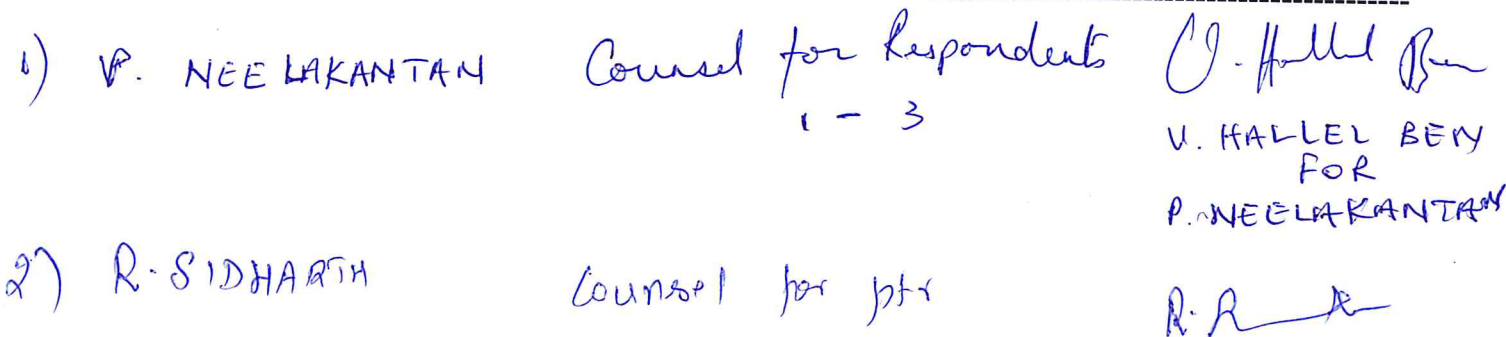 1) P. NEELAKANTAN Counsel for Respondents V. Hallel Ben
1 - 3
V. HALLEL BEN
FOR
P. NEELAKANTAN
2) R. SIDHARTH Counsel for ptr